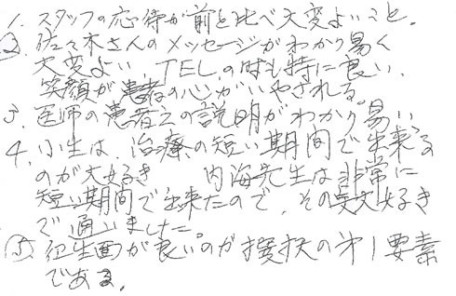 1. スタッフの応待が前と比べ大変よいこと。
② 佐々木さんのメッセージがわかり易く
大変よい TELの時も特に良い、
笑顔が患者の心がいやされる
3. 医師の患者えの説明がわかり易い
4. 小生は、治療の短い期間で出来るの
のが大好き 内海先生は非常に
短い期間で出来たので、その大好き
で通いました。
⑤ 衛生面が良いのが撰択の第1要素
である。